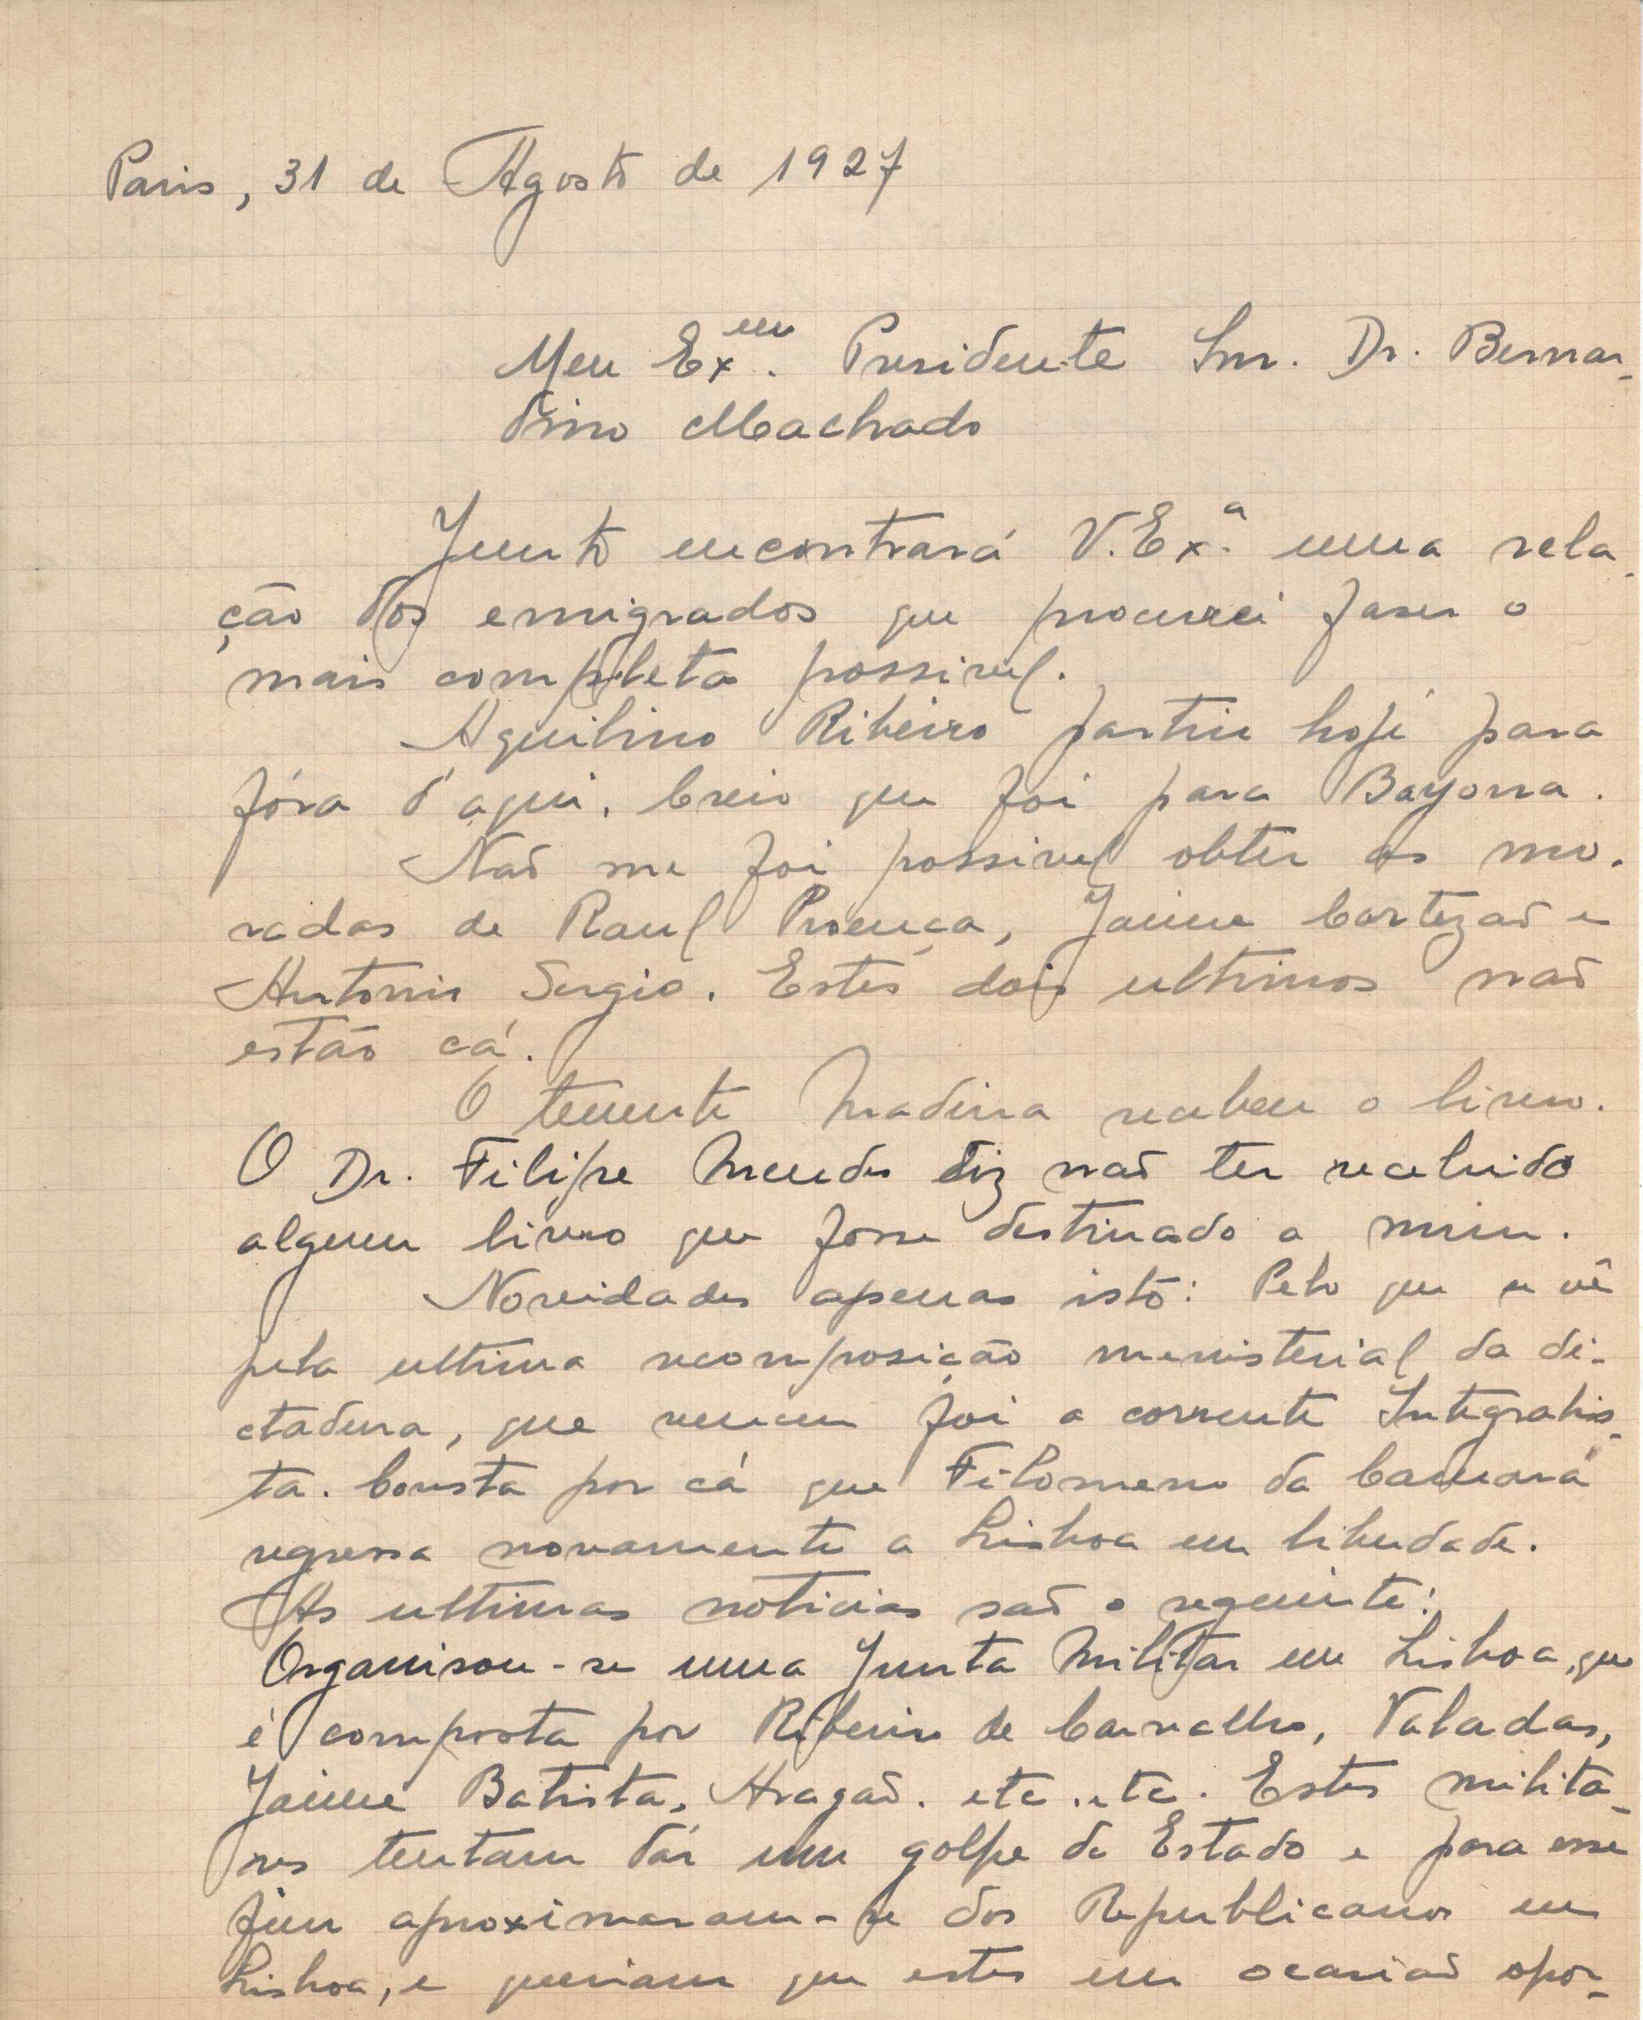 Paris, 31 de Agosto de 1927
Meu Ex.mo Presidente Snr. Dr. Bernar-
dino Machado
Junto encontrará V. Ex.a uma rela-
ção dos emigrados que procurei faser o
mais completa possivel.
Aquilino Ribeiro partiu hoje para
fóra d'aqui. Creio que foi para Bayona.
Naõ me foi possivel obter as mo-
radas de Raul Proença, Jaime Cortezaõ e
Antonio Sergio. Estes dois ultimos naõ
estão cá.
O tenente Madeira recebeu o livro.
O Dr. Filipe Mendes diz naõ ter recebido
algum livro que fosse destinado a mim.
Novidades apenas isto: Pelo que se vê
pela ultima recomposição ministerial da di-
ctadura, que venceu foi a corrente Integralis-
ta. Consta por cá que Filomeno da Camara
regressa novamente a Lisboa em liberdade.
As ultimas noticias saõ o seguinte:
Organisou-se uma Junta Militar em Lisboa, que
é composta por Ribeiro de Carvalho, Valadas,
Jaime Batista, Aragaõ. etc. etc. Estes milita-
res tentam dár um golpe de Estado e para esse
fim aproximaram-se dos Republicanos em
Lisboa, e queriam que estes em ocasiaõ opor-